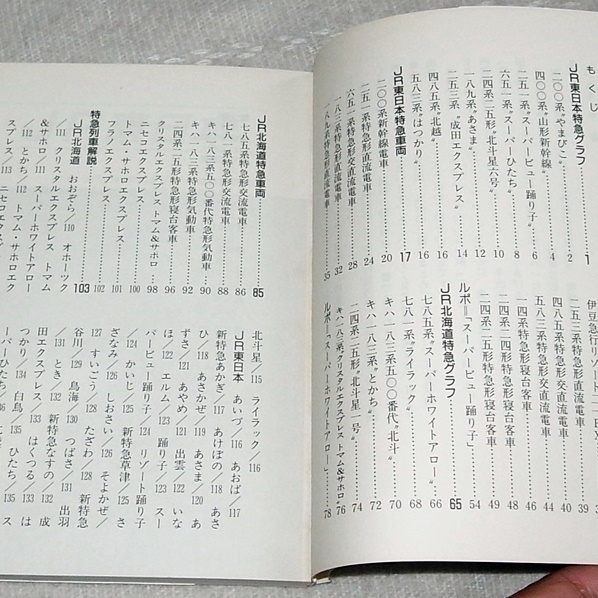 もくじ
JR東日本特急グラフ……1
二〇〇系“やまびこ”……2
四〇〇系“山形新幹線”……4
二五一系“スーパービュー踊り子”……6
六五一系“スーパーひたち”……8
二四系二五形“北斗星六号”……10
一八九系“あさま”……12
二五三系“成田エクスプレス”……14
四八五系“北越”……16
五八三系“はつかり”……16
JR東日本特急車両……17
二〇〇系新幹線電車……20
二五一系特急形直流電車……24
六五一系特急形交直流電車……28
二五三系特急形直流電車……32
一八九系特急形直流電車……35
四八五系特急形交直流電車……40
五八三系特急形交直流電車……44
二四系二五形特急形寝台客車……46
二四系特急形寝台客車……48
一四系特急形寝台客車……49
ルポ＝「スーパービュー踊り子」……54
JR北海道特急グラフ……65
七八五系“スーパーホワイトアロー”……66
七八一系“ライラック”……68
キハ一八三系五〇〇番代“北斗”……70
キハ一八三系“とかち”……72
二四系二五形“北斗星一号”……74
キハ一八三系“クリスタルエクスプレス トマム&サホロ”……76
ルポ＝「スーパーホワイトアロー」……78
JR北海道特急車両……85
七八五系特急形交流電車……86
七八一系特急形交流電車……88
キハ一八三系五〇〇番代特急形気動車……90
キハ一八三系特急形気動車……92
二四系二五形特急形寝台客車……96
クリスタルエクスプレス トマム&サホロ……98
ニセコエクスプレス……100
トマム・サホロエクスプレス……101
フラノエクスプレス……102
特急列車解説……103
JR北海道 おおぞら／110 オホーツク
／111 クリスタルエクスプレス トマム
&サホロ／111 スーパーホワイトアロー
／112 とかち／112 トマム・サホロエク
スプレス／113 ニセコエクスプレス
北斗星／115 ライラック／116
JR東日本 あいづ／116 あおば／117
新特急あかぎ／117 あけぼの／118 あさ
ひ／118 あさかぜ／119 あさま／120 あ
ずさ／121 あやめ／121 出雲／122 いな
ほ／122 エルム／123 踊り子／123 スー
パービュー踊り子／124 リゾート踊り子
／124 かいじ／125 新特急草津／125 さ
ざなみ／126 しおさい／126 そよかぜ／
127 すいごう／127 たざわ／128 新特急
谷川／129 鳥海／130 つばさ／131 出羽
／131 とき／132 新特急なすの／132 成
田エクスプレス／133 はくつる／133 は
つかり／134 白鳥／135 ひたち／135 ス